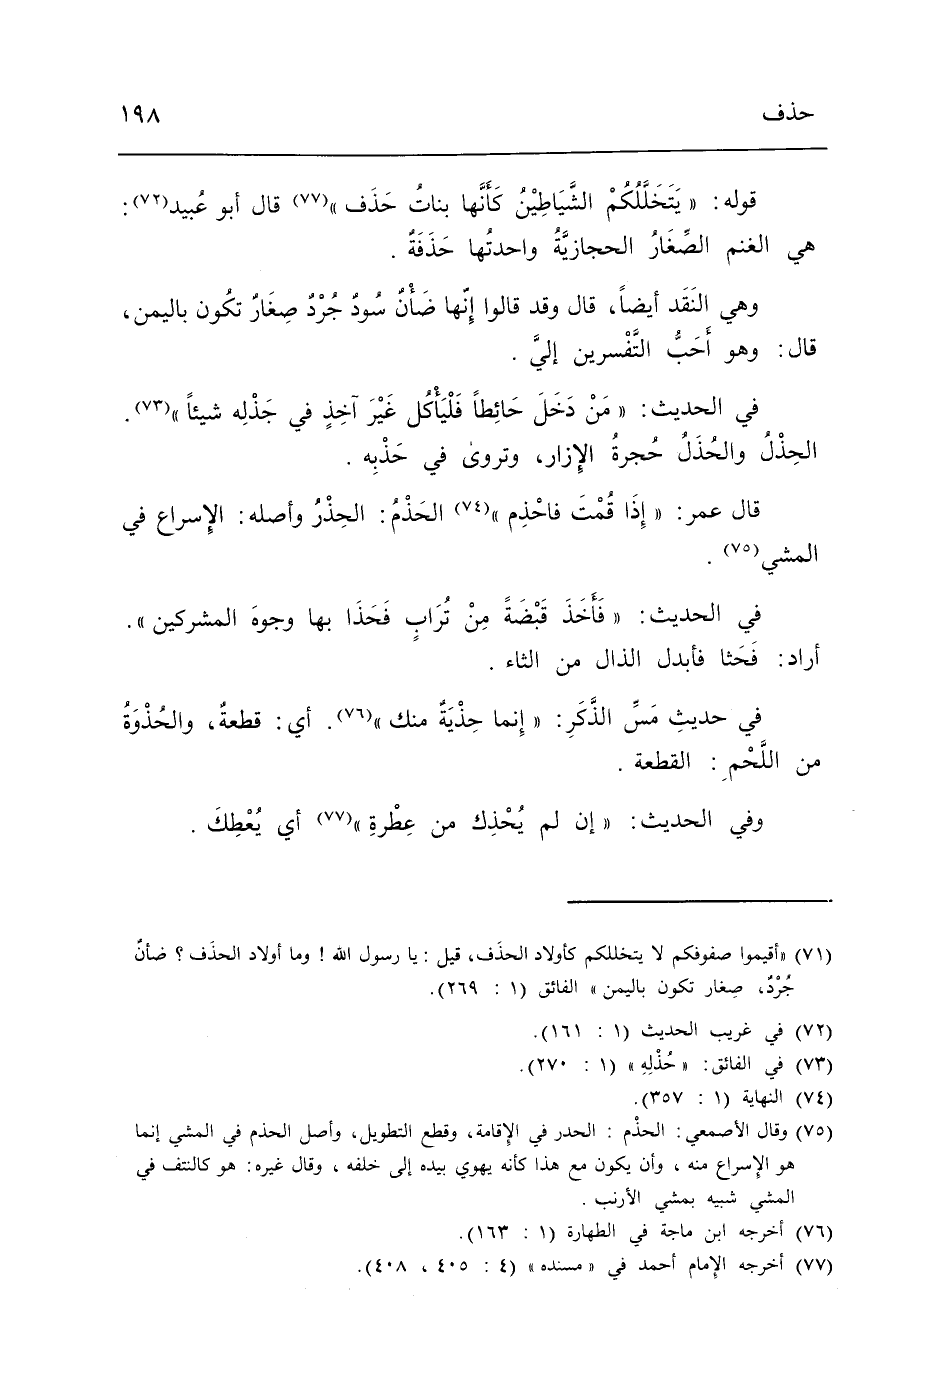 حذف ١٩٨
قوله: « يَتَخَلَّلُكُمْ الشَّيَاطِيْنُ كَأَنَّها بناتُ حَذَف »(٧٧) قال أبو عُبيد(٧٢):
هي الغنم الصِّغَارُ الحجازيَّةُ واحدتُها حَذَفَةٌ .
وهي النَقَد أيضاً، قال وقد قالوا إنّها ضَأْنٌ سُودٌ جُرْدٌ صِغَارٌ تكُون باليمن،
قال: وهو أَحَبُّ التَّفْسرين إليَّ .
في الحديث: « مَنْ دَخَلَ حَائِطاً فَلْيَأْكُل غَيْرَ آخِذٍ في حَذْلِه شيئاً »(٧٣).
الحِذْلُ والحُذَلُ حُجرةُ الإِزار، وتروىٰ في حَذْبِه .
قال عمر: « إِذَا قُمْتَ فاحْذِم »(٧٤) الحَذْمُ: الحِذْرُ وأصله: الإِسراع في
المشي(٧٥) .
في الحديث: « فَأَخَذَ قَبْضَةً مِنْ تُرَابٍ فَحَذَا بها وجوهَ المشركين ».
أراد: فَحَثا فأبدل الذال من الثاء .
في حديثِ مَسِّ الذَّكَرِ: « إنما حِذْيَةٌ منك »(٧٦). أي: قطعةٌ، والحُذْوَةُ
من اللَّحْمِ : القطعة .
وفي الحديث: « إن لم يُحْذِك من عِطْرةِ »(٧٧) أي يُعْطِكَ .
(٧١) «أقيموا صفوفكم لا يتخللكم كأولاد الحذَف، قيل : يا رسول الله ! وما أولاد الحذَف ؟ ضأنٌ
جُرْدٌ، صِغار تكون باليمن » الفائق (١ : ٢٦٩).
(٧٢) في غريب الحديث (١ : ١٦١).
(٧٣) في الفائق: « حُذْلِهِ » (١ : ٢٧٠).
(٧٤) النهاية (١ : ٣٥٧).
(٧٥) وقال الأصمعي: الحذْم : الحدر في الإقامة، وقطع التطويل، وأصل الحذم في المشي إنما
هو الإِسراع منه ، وأن يكون مع هذا كأنه يهوي بيده إلى خلفه ، وقال غيره: هو كالنتف في
المشي شبيه بمشي الأرنب .
(٧٦) أخرجه ابن ماجة في الطهارة (١ : ١٦٣).
(٧٧) أخرجه الإمام أحمد في « مسنده » (٤ : ٤٠٥ ، ٤٠٨).